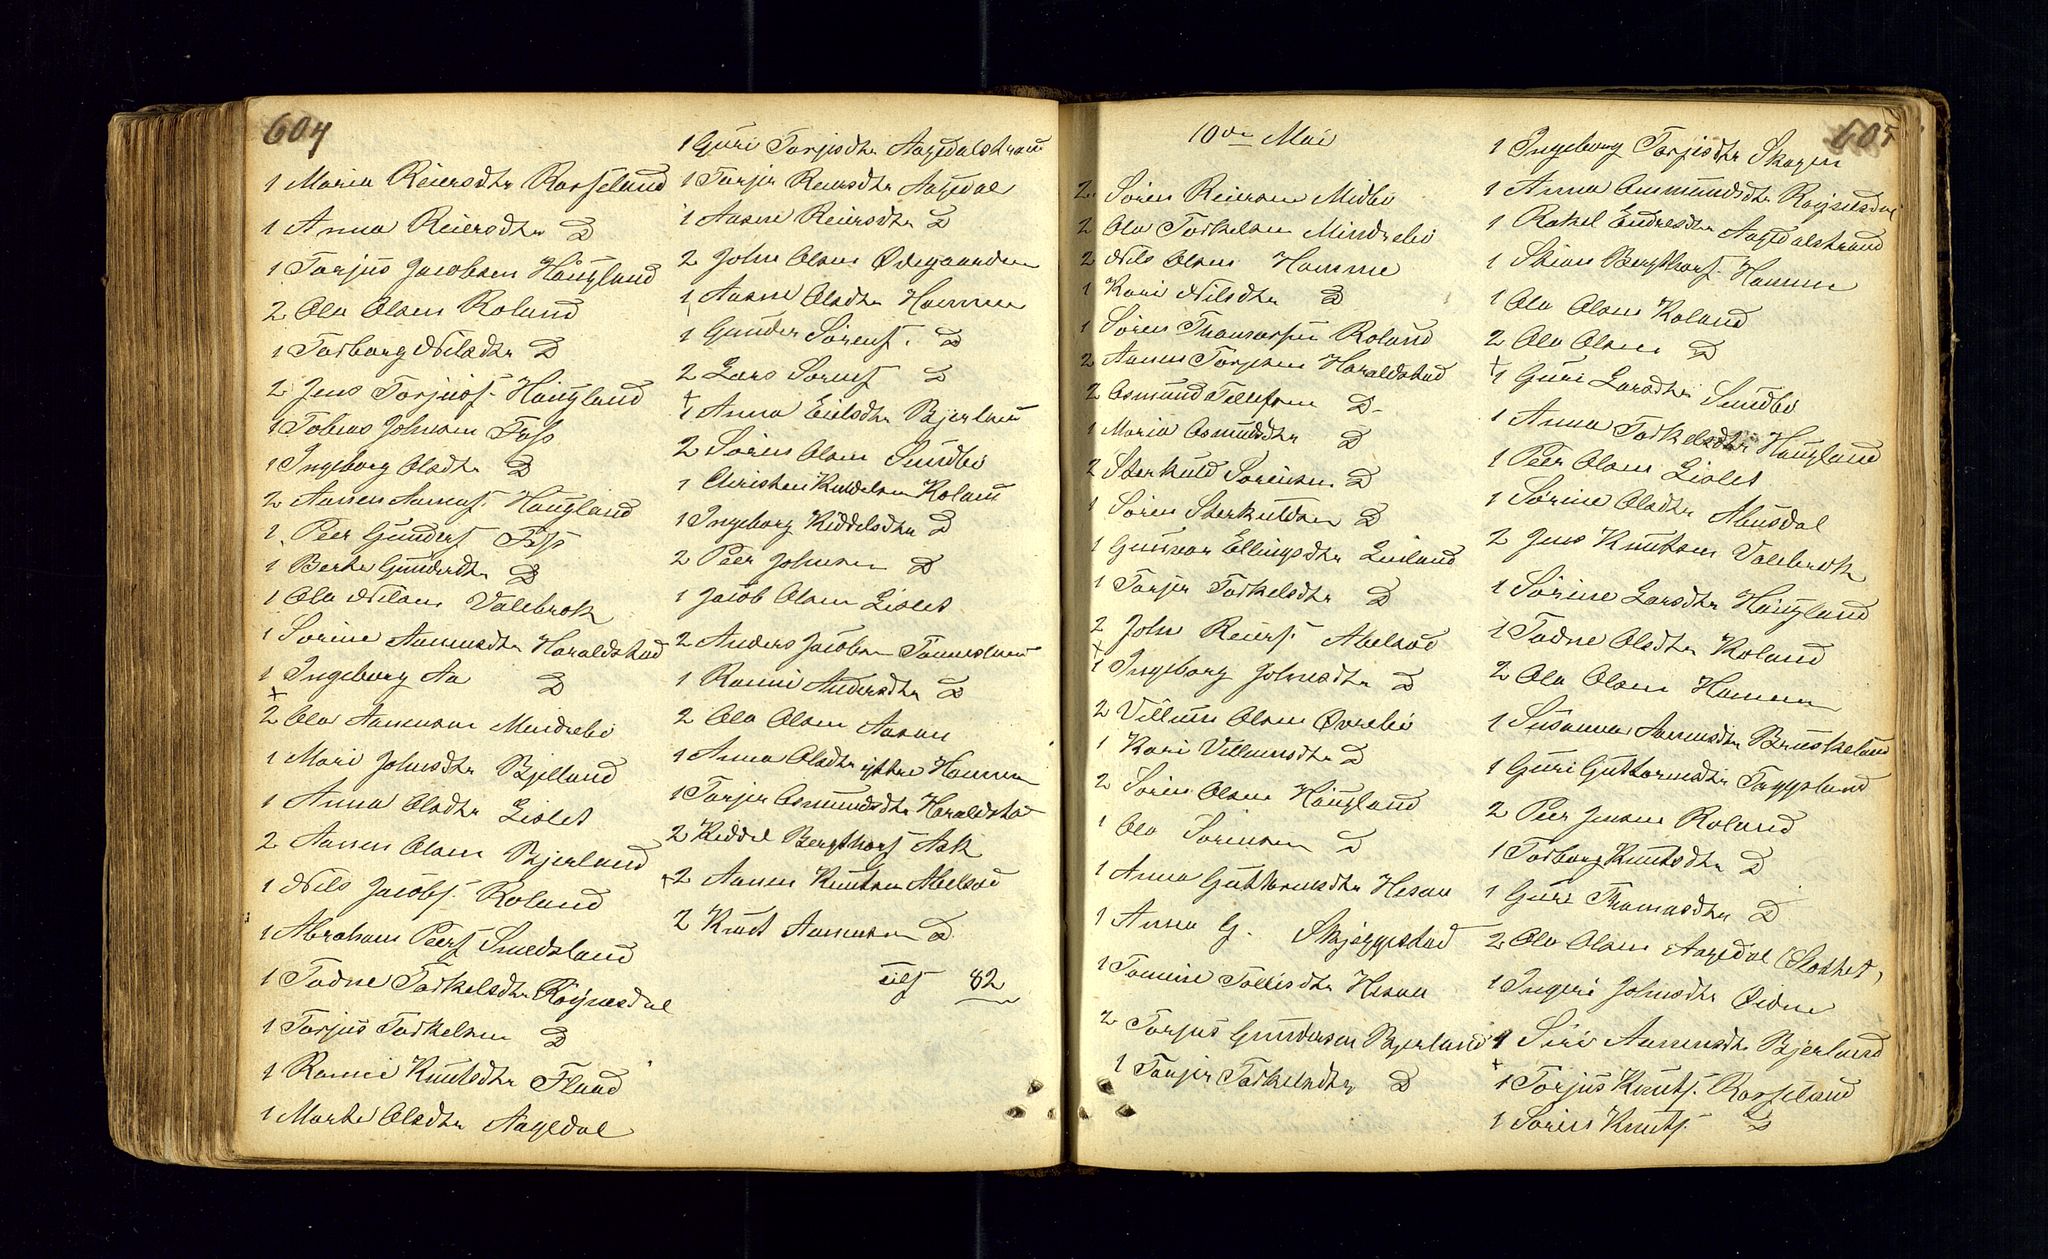 604
1 Maria Reiersdtr Rosseland
1 Anna Reiersdtr D
1 Torjus Jacobsen Haugland
2 Ola Olsen Roland
1 Torborg Nilsdtr D
2 Jens Torjusf. Haugland
1 Tobias Johnsen Foss
1 Ingeborg Olsdtr D
2 Aanen Aanenf. Haugland
1 Peer Gunderf Foss
1 Berte Gundersdtr D
1 Ola Nilsen Valebrok
1 Sørine Aanensdtr Haraldstad
1 Ingeborg Aa D
+
2 Ola Aanensen Mindrebø
1 Mari Johnsdtr Bjelland
1 Anna Olsdtr Liolet
2 Aanen Olsen Bjerland
1 Nils Jacobf. Roland
1 Abraham Peerf Smedsland
1 Todne Torkelsdtr Røynesdal
1 Torjus Torkelsen D
1 Ranni Knutsdtr Flaad
1 Marte Olsdtr Aagedal
1 Guri Torjesdtr Aagedalstrand
1 Torjer Reiersdtr Aagedal
1 Aasne Reiersdtr D
2 John Olsen Ødegaarden
1 Aasne Olsdtr Homme
1 Gunder Sørenf. D
2 Lars Sørenf D
+
1 Anna Eilsdtr Bjerland
2 Søren Olsen Sundbø
1 Christen Kiddelsen Roland
1 Ingeborg Kiddelsdtr D
2 Peer Johnsen D
1 Jacob Olsen Liolet
2 Anders Jacobsen Tønnesland
1 Ranni Andersdtr D
2 Ola Olsen Aasen
1 Anna Olsdtr yttre Homme
1 Torjer Osmundsdtr Haraldstad
2 Kiddel Bergthorf Ask
+2 Aanen Knutsen Abelsæd
2 Knut Aanensen D
Tils 82
605
10de Mai
2 Søren Reiersen Midbø
2 Ola Torkelsen Mindrebø
2 Nils Olsen Homme
1 Kari Nilsdtr D
1 Søren Thomassen Roland
2 Aanen Torjesen Haraldstad
2 Osmund Tellefsen D
1 Maria Osmundsdtr D
2 Sterkuld Sørensen D
1 Søren Sterkuldsen D
1 Gunvor Ellingsdtr Lauland
1 Torjer Torkelsdtr D
2 John Reierf. Abelsæd
+
1 Ingeborg Johnsdtr D
2 Villum Olsen Øvrebø
1 Kari Villumsdtr D
2 Søren Olsen Haugland
1 Ola Sørensen D
1 Anna Guttormsdtr Hesaa
1 Anna G. Skjeggestad
1 Tomine Tollisdtr Hesaa
2 Torjus Gundersen Bjerland
1 Torjer Torkelsdtr D
1 Ingeborg Torjesdtr Skogen
1 Anna Osmundsdtr Røynesdal
1 Rakel Endresdtr Aagedalstrand
1 Stian Bergthorf. Homme
1 Ola Olsen Roland
2 Ola Olsen D
+
1 Guri Larsdtr Sundbø
1 Anna Torkelsdtr Haugland
1 Peer Olsen Liolet
1 Sørine Olsdtr Abusdal
2 Jens Knutsen Valebrok
1 Sørine Larsdtr Haugland
1 Todne Olsdtr Roland
2 Ola Olsen Homme
1 Susanna Aanensdtr Bruskeland
1 Guri Guttormsdtr Taggsland
2 Peer Jensen Roland
1 Torborg Knutsdtr D
1 Guri Thomasdtr D
2 Ola Olsen Aagedal (Slothet)
1 Ingeri Johnsdtr Øidne
1 Siri Aanensdtr Bjerland
+
1 Torjus Knutf. Rosseland
1 Søren Knutf. D